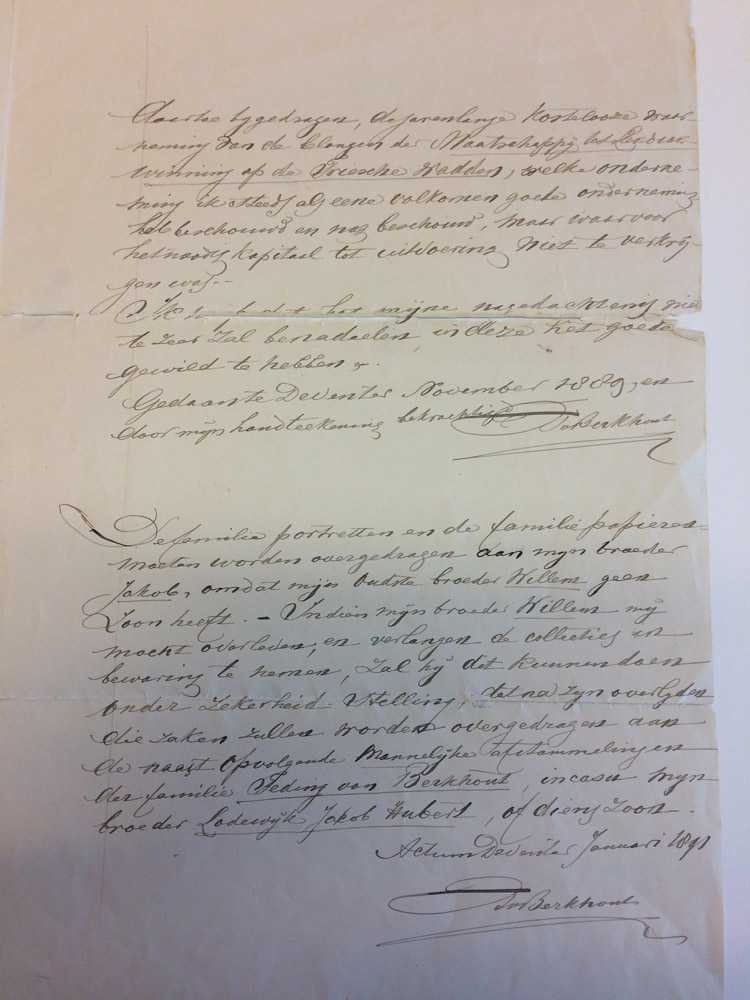 daartoe bygedragen, de jarenlange kostelooze waar-
neming van de belangen der Maatschappij tot
winning op de Friesche Wadden, welke onderne-
ming ik steeds als eene volkomen goede onderneming
heb beschouwd en nog beschouw, maar waarvoor
het noodig kapitaal tot uitvoering niet te verkrij-
gen was.-
Ik dat het mijne nagedachtenis niet
te zeer zal benadeelen, in deze het goede
gewild te hebben.
Gedaan te Deventer November 1889, en
door mijn handteekening bekrachtigd TvBerkhout
De familie portretten en de familiepapieren
moeten worden overgedragen aan mijn broeder
Jakob, omdat mijn oudste broeder Willem geen
Zoon heeft. - Indien mijn broeder Willem mij
mocht overleven, en verlangen de collecties in
bewaring te nemen, zal hij dit kunnen doen
onder zekerheid-Stelling, dat na zijn overlijden
die zaken zullen worden overgedragen aan
de naast opvolgende Mannelijke afstammelingen
der familie Teding van Berkhout, in casu mijn
broeder Lodewijk Jakob Hubert, of diens zoon.
Actum Deventer Januari 1891
TvBerkhout